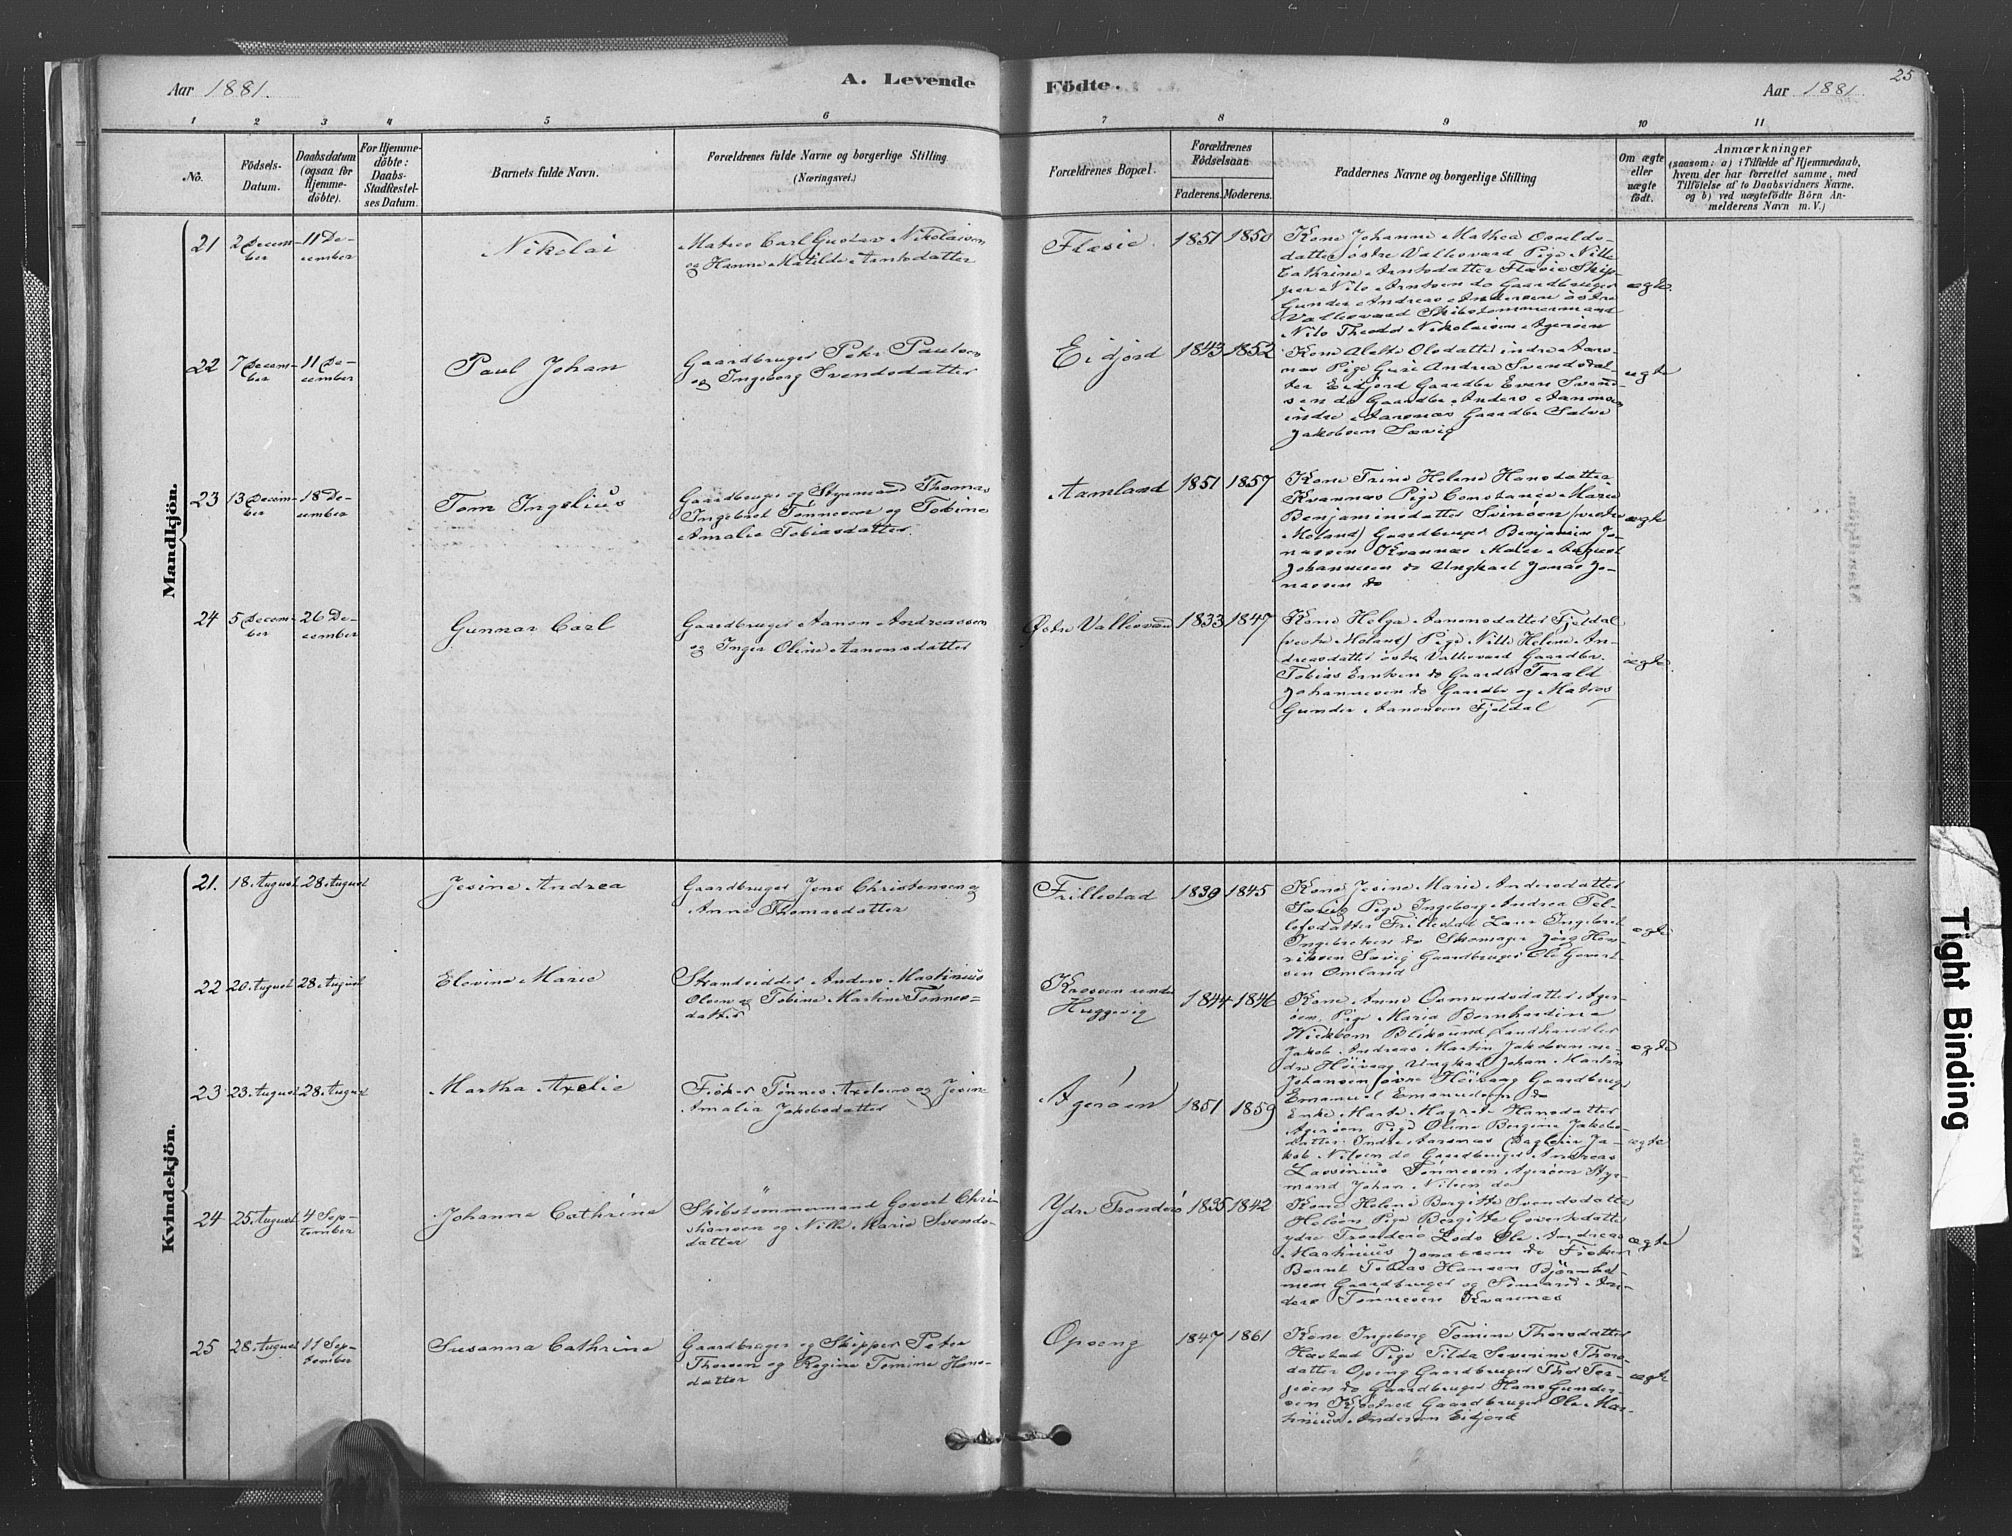 Aar 1881.
A. Levende
Födte.
Aar 1881
25
1 2 3 4 5 6 7 8 9 10 11
No.
Födsels-
Datum.
Daabsdatum
(ogsaa for
Hjemme-
döbte).
For Hjemme-
döbte:
Daabs-
Stadfæstel-
ses Datum.
Barnets fulde Navn.
Forældrenes fulde Navne og borgerlige Stilling
(Næringsvei.)
Forældrenes Bopæl.
Forældrenes
Födselsaar.
Faderens.
Moderens.
Faddernes Navne og borgerlige Stilling
Om ægte
eller
uægte
født.
Anmærkninger
(saasom: a) i Tilfælde af Hjemmedaab,
hvem der har forrettet samme, med
Tilföielse af to Daabsvidners Navne.
og b) ved uægtefödte Börn An-
melderens Navn m. V.)
Mandkjön.
21
2 Decem-
ber
11 De-
cember
Nikolai
Matros Carl Gustav Nikolaisen
og Hanne Matilde Arntsdatter
Flæsie.
1851
1850
Kone Johanne Mathea Osulds-
datter østre Vallesværd Pige Nille
Cathrine Arntsdatter Flæsie Skip-
per Nils Arntsen do Gaardbruger
Gunder Andreas Andersen østre
Vallesværd Skibstømmermand
Nils Theodr Nikolaisen Agerøen
ægte.
22
7 Decem-
ber
11 De-
cember
Paul Johan
Gaardbruger Peder Paulsen
og Ingeborg Svendsdatter
Eidjord
1843
1852
Kone Alette Olsdatter indre Aars-
næs Pige Guri Andrea Svendsdat-
ter Eidjord Gaardbr Even Svend-
sen do Gaardbr Anders Aanonsen
indre Aarsnæs Gaardbr Salve
Jakobsen Sævig
ægte
23
13 Decem-
ber
18 De-
cember
Tom Ingelius
Gaardbruger og Styrmand Thomas
Ingebret Tønnesen og Tobine
Amalie Tobiasdatter.
Aamland
1851
1857
Kone Trine Helene Hansdatter
Kvannæs Pige Constance Marie
Benjaminsdatter Svinøen (vestre
Moland) Gaardbruger Benjamin Jo-
nassen Kvannæs Maler August
Johannesen do Ungkarl Jonas Jo-
nassen do
ægte
24
5 Decem-
ber
26 De-
cember
Gunnar Carl
Gaardbruger Aanon Andreassen
og Inger Oline Aanonsdatter
Østre Vallesværd
1833
1847
Kone Helga Aanonsdatter Fjeldal
(vestre Moland) Pige Nille Helene An-
dreasdatter østre Vallesværd Gaardbr.
Tobias Erntsen do Gaardbr Tarald
Johannesen do Gaardbr og Matros
Gunder Aanonsen Fjeldal
ægte.
Kvindekjön.
21.
18 August
28 August
Jesine Andrea
Gaardbruger Jens Christensen og
Anne Thomasdatter
Frillestad
1839
1845
Kone Jesine Marie Andersdatter
Sævig Pige Ingeborg Andrea Tel-
lefsdatter Frillestad Lærer Ingebret
Ingebretsen do Skomager Jørg Hen-
riksen Sævig Gaardbruger Ole Govert-
sen Omland
ægte
22
20 August
28 August
Elevine Marie
Strandsidder Anders Martinius
Olsen og Tobine Martine Tønnes-
datter
under
Huggevig
1844
1846
Kone Anne Osmundsdatter Ager-
øen, Pige Maria Bernhardine
Wickbom Bliksund Landhandler
Jakob Andreas Martin Jakobsen ne-
dre Høivaag Ungkarl Johan Martin
Johansen øvre Høivaag Gaardbrug
Emanuel Emanuelsen do
ægte
23
23 August
28 August
Martha Axelie
Fisker Tønnes Axelsen og Jesine
Amalia Jakobsdatter
Agerøen
1851
1859
Enke Marte Magrete Hansdatter
Agerøen Pige Oline Bergine Jakobs-
datter Indre Aarsnæs Dagleier Ja-
kob Nilsen do Gaardbruger Andreas
Lavinius Tønnesen Agerøen Styr-
mand Johan Nilsen do
ægte
24
25 August
4 Sep-
tember
Johanne Cathrine
Skibstömmermand Govert Chri-
stiansen og Nille Marie Svends-
datter
Ydre Tronderø
1835
1842
Kone Helene Bergitte Svendsdatter
Helöen Pige Bergitte Govertsdatter
ydre Tronderø Lods Ole Andreas
Martinius Jonassen do Fisker
Bernt Tobias Hansen Bjørnhol-
men Gaardbruger og Sömand An-
ders Tønnesen Kvarenæs
ægte
25
28 August
11 Sep-
tember
Susanna Cathrine
Gaardbruger og Skipper Peter
Thorsen og Regine Tomine Hans-
datter
Opseng
1847
1861
Kone Ingeborg Tomine Thorsdatter
Hæstad Pige Tilda Severine Thors-
datter Opseng Gaardbruger Thor Ter-
jesen do Gaardbruger Hans Gunder-
sen Kjøstred Gaardbruger Ole Mar-
tinius Andersen Eidjord
ægte
Tight Binding